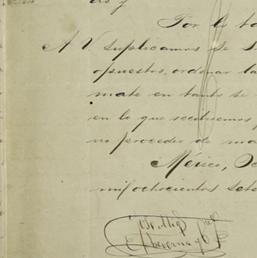 as y
Por lo ta
A V suplicamos se s
opuestos, ordenar la
mate en tanto se
en lo que recibiremos
no proceder de ma
Méxco,
mil ochocientos sete